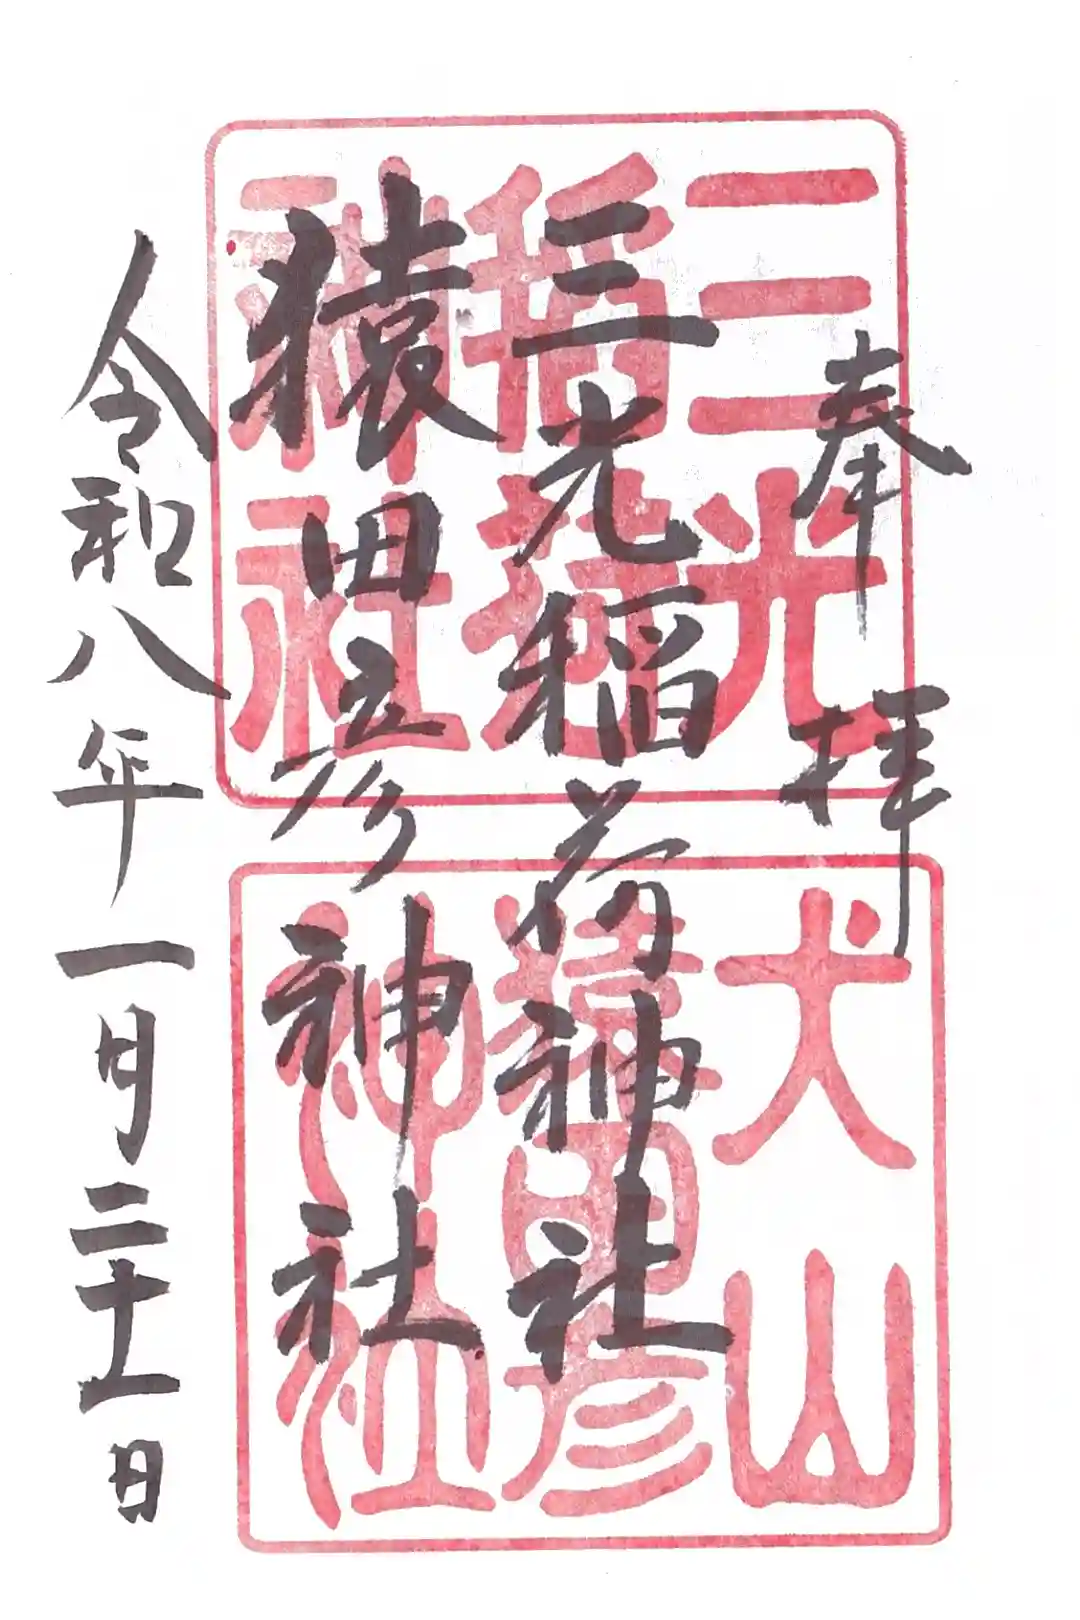 奉拝
三光稲荷神社
猿田彦神社
令和八年一月二十一日
三光
稲荷
神社
犬山
猿田彦
神社